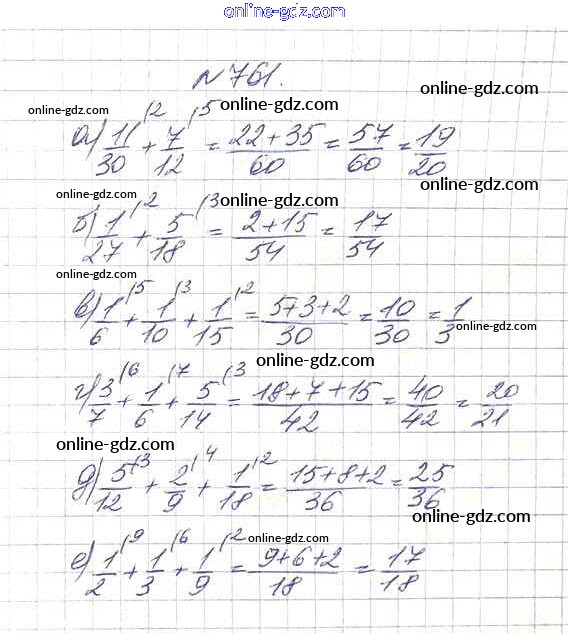 www.online-gdz.com
№761.
online-gdz.com
online-gdz.com online-gdz.com
а) 11/30 ⁽² + 7/12 ⁽⁵ = (22+35)/60 = 57/60 = 19/20
online-gdz.com online-gdz.com online-gdz.com
б) 1/27 ⁽² + 5/18 ⁽³ = (2+15)/54 = 17/54
online-gdz.com online-gdz.com
в) 1/6 ⁽⁵ + 1/10 ⁽³ + 1/15 ⁽² = (5+3+2)/30 = 10/30 = 1/3
online-gdz.com
online-gdz.com
г) 3/7 ⁽⁶ + 1/6 ⁽⁷ + 5/14 ⁽³ = (18+7+15)/42 = 40/42 = 20/21
online-gdz.com online-gdz.com
д) 5/12 ⁽³ + 2/9 ⁽⁴ + 1/18 ⁽² = (15+8+2)/36 = 25/36
online-gdz.com
online-gdz.com
е) 1/2 ⁽⁹ + 1/3 ⁽⁶ + 1/9 ⁽² = (9+6+2)/18 = 17/18